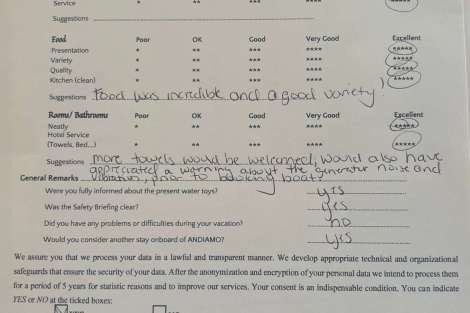 Service * ** *** **** *****
Suggestions
Food Poor OK Good Very Good Excellent
Presentation * ** *** **** *****
Variety * ** *** **** *****
Quality * ** *** **** *****
Kitchen (clean) * ** *** **** *****
Suggestions Food was incredible and a good variety
Rooms/ Bathrooms Poor OK Good Very Good Excellent
Neatly * ** *** **** *****
Hotel Service
(Towels, Bed....) * ** *** **** *****
Suggestions more towels would be welcomed, would also have
appreciated a warning about the generator noise and
General Remarks vibration, prior to booking boat
Were you fully informed about the present water toys? yes
Was the Safety Briefing clear? yes
Did you have any problems or difficulties during your vacation? no
Would you consider another stay onboard of ANDIAMO? yes
We assure you that we process your data in a lawful and transparent manner. We develop appropriate technical and organizational
safeguards that ensure the security of your data. After the anonymization and encryption of your personal data we intend to process them
for a period of 5 years for statistic reasons and to improve our services. Your consent is an indispensable condition. You can indicate
YES or NO at the ticked boxes: